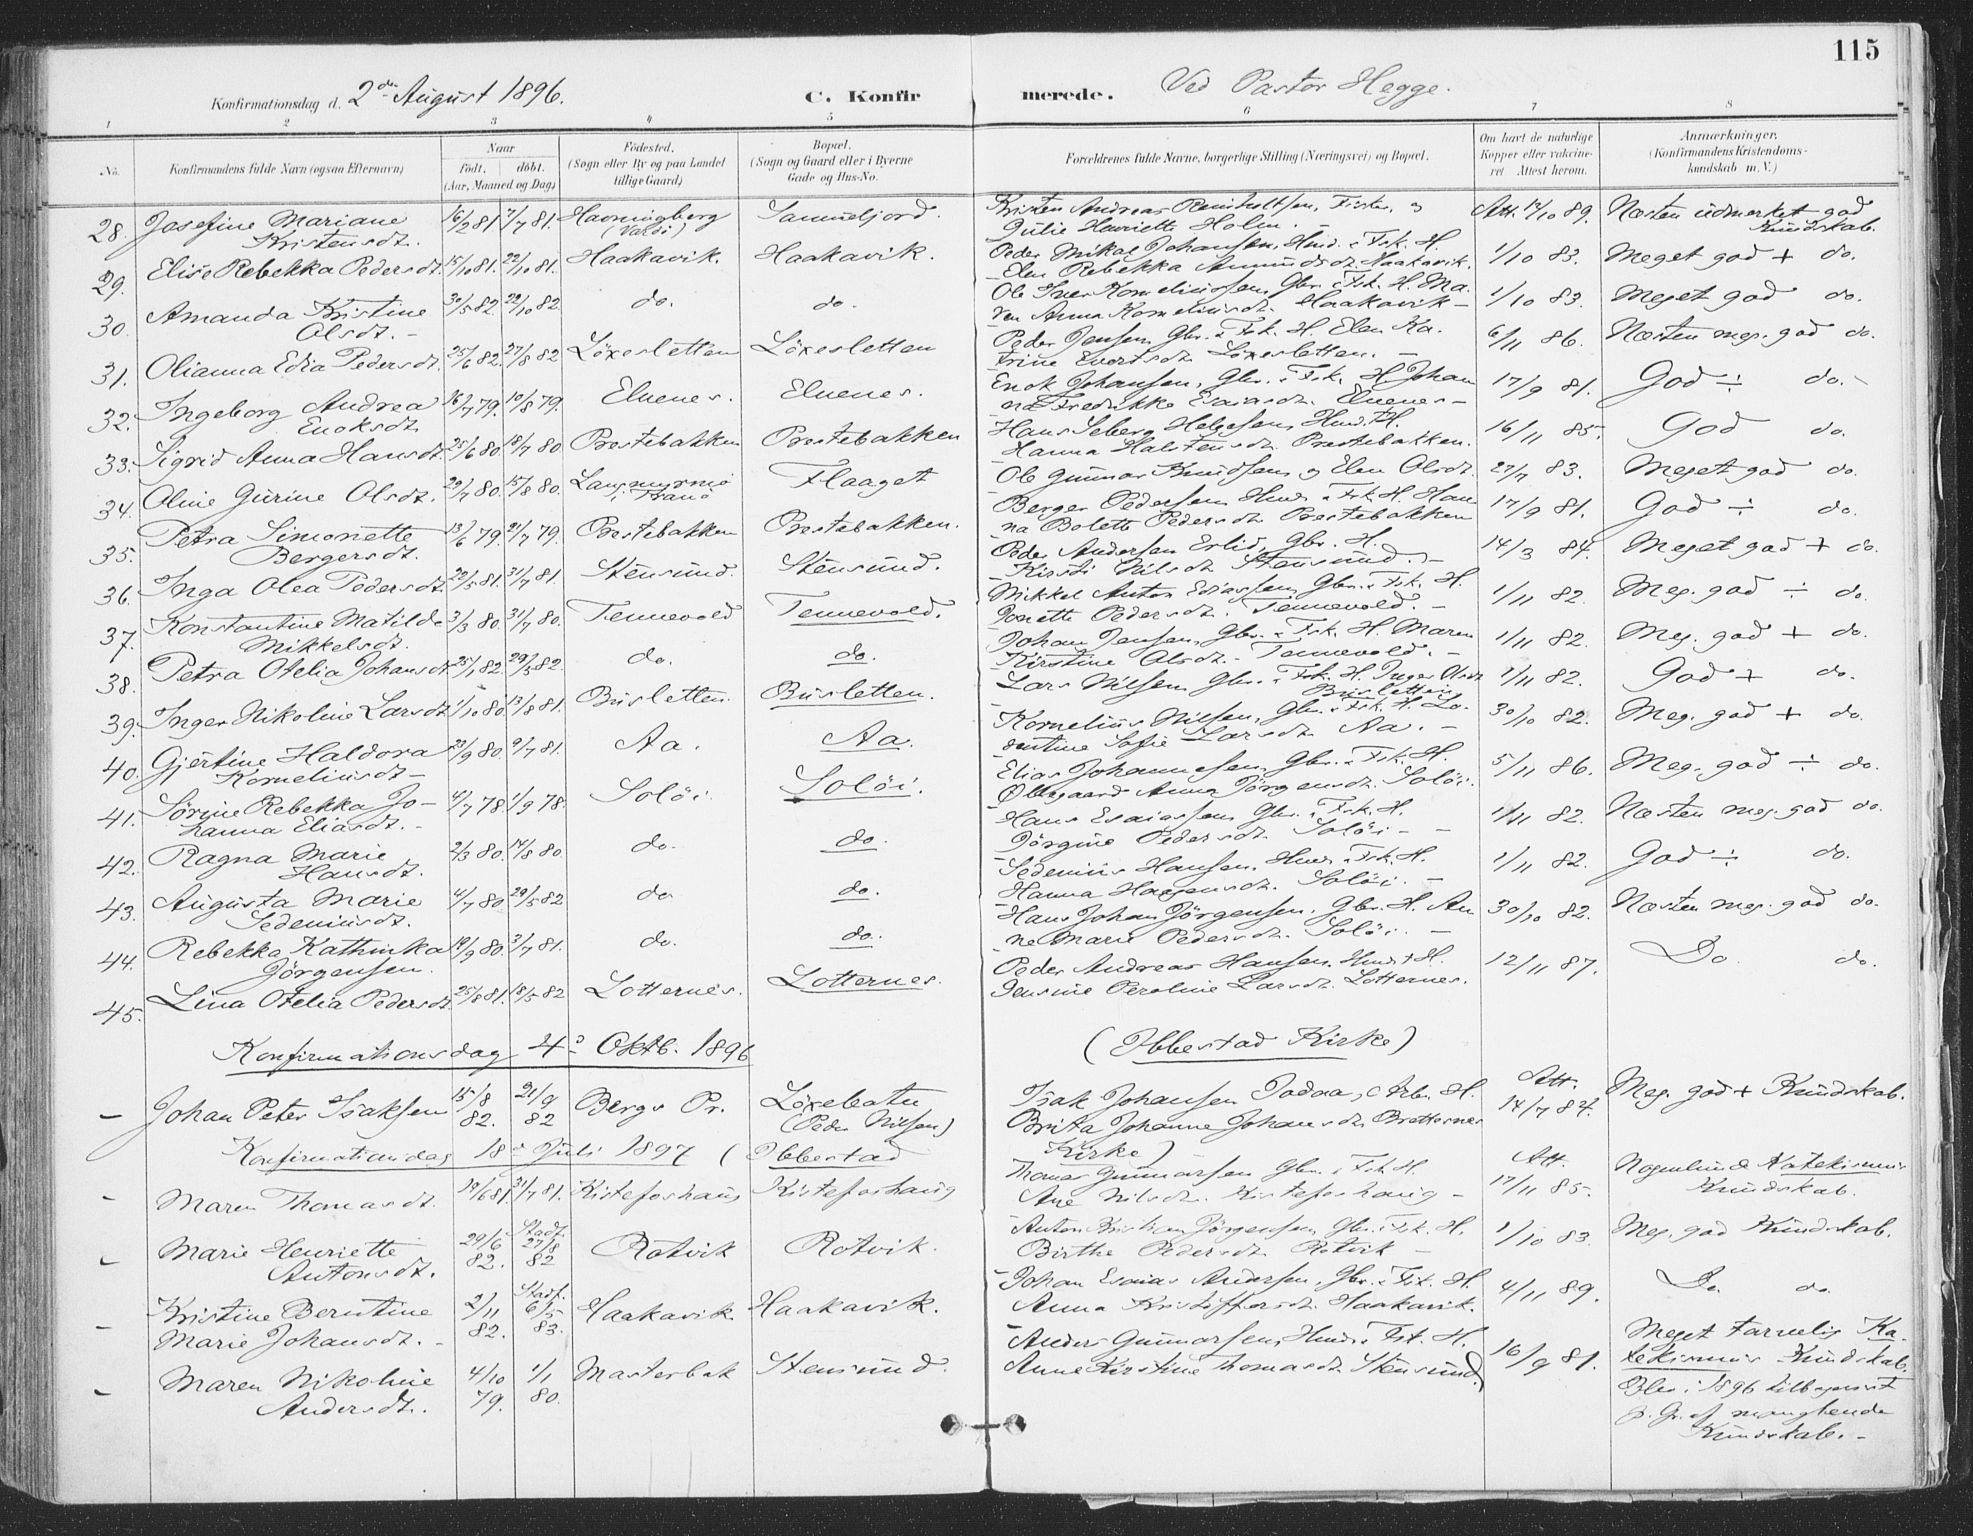 115
Konfirmationsdag d. 2den August 1896. C. Konfirmerede. Ved Pastor Hegge.
1 2 3 4 5 6 7 8
No. Konfirmandens fulde Navn (ogsaa Efternavn) Naar født. døbt. (Aar, Maaned og Dag) Fødested. (Sogn eller By og paa Landet tillige Gaard) Bopæl. (Sogn og Gaard eller i Byerne Gade og Hus-No. Forældrenes fulde Navne, borgerlige Stilling (Næringsvei) og Bopæl. Om havt de naturlige Kopper eller vakcineret Attest herom. Anmærkninger. (Konfirmandens Kristendomskundskab m. V.)
28. Josefine Mariane Kristensdt. 16/2 81 7/7 81. Havningberg (Vardö) Kristen Andreas Reinholtsen, Fisker, og Julie Henriette Holm. Att. 14/10 89. Næsten udmerket god Kundskab.
29. Elise Rebekka Pedersdt. 15/10 81. 22/10 81. Haakavik. Haakavik. Peder Mikal Johansen, Hmd. i Fsk. H. Elen Rebekka Amundsdt. Haakavik. 1/10 83. Meget god + do.
30. Amanda Kristine Olsdt. - 30/5 82 22/10 82. do. do. Ole Iver Korneliussen, Gbr. i Fsk. H. Maren Anna Korneliusdt. Haakavik - 1/10 83. Meget god do.
31. Olianna Edia Pedersdt. 25/6 82. 27/8 82 Löxesletten Löxesletten Peder Jensen, Gbr. i Fsk. H. Elen Katrine Evertsdt. Löxesletten. - 6/11 86. Næsten meg. god do.
32. Ingeborg Andrea Enoksdt. 16/7 79. 10/8 79. Elvenes. Elvenes. Enok Johansen, Gbr. i Fsk. H. Johanna Fredrikke Esaiasdt. Elvenes - 17/9 81. God ÷ do. -
33. Sigrid Anna Hansdt. 25/6 80. 18/7 80. Prestebakken Prestebakken Hans Seberg Helgesen Hmd. H. Hanna Halstensdt. Prestebakken. 16/11 85. God do.
34. Oline Gurine Olsdt. 29/7 80. 15/8 80. i Tranö Flaaget Ole Gunnar Knudsen og Elen Olsdt. 27/7 83. Meget god do.
35. Petra Simonette Bergersdt. 13/6 79. 21/7 79. Prestebakken Prestebakken. Berger Pedersen Hmd. i Fsk. H. Hanna Bolette Pedersdt. Prestebakken 17/9 81. God ÷ do.
36. Inga Olea Pedersdt. 22/5 81. 31/7 81. Stensund. Stensund. Peder Andersen Erlid, Gbr. H. Kirsti Nilsdt. Stensund. - 14/3 84. Meget god + do.
37. Konstantine Matilde Mikkelsdt. 3/3 80. 31/7 80. Tennevold Tennevold. Mikkel Anton Esiassen Gbr. i Fsk. H. Jonette Pedersdt. Tennevold. - 1/11 82. Meg. god ÷ do.
38. Petra Otelia Johansdt. 25/1 82. 29/5 82. do. do. Johan Jensen, Gbr. i Fsk. H. Maren Kirstine Olsdt. - Tennevold. - 1/11 82. Meg. god + do.
39. Inger Nikoline Larsdt. 1/10 80. 13/8 81. Busletten. Busletten. Lars Nilsen Gbr. i Fsk. H. Inger Olsdt Busletten. 1/11 82. God + do.
40. Gjertine Haldora Korneliusdt. - 23/9 80. 9/7 81. Aa. Aa. Kornelius Nilsen, Gbr. i Fsk. H. Lodentine Sofie Larsdt. Aa. - 30/10 82. Meg. god + do.
41. Sörine Rebekka Johanna Eliasdt. - 4/7 78. 1/9 78. Solöi. Solöi. Elias Johannesen, Gbr. i Fsk. H. Ollegaard Anna Jörgensdt. Solöi. 5/11 86. Meg. god ÷ do.
42. Ragna Marie Hansdt. 2/3 80. 14/8 80. do. do. Hans Esaiassen Gbr. i Fsk. H. Jörgine Pedersdt. Solöi - - 1/11 82. Næsten meg. god do.
43. Augusta Marie Sedeniusdt. 4/7 80. 29/5 82 do do. Sedenius Hansen, Hmd. i Fsk. H. Hanna Haagensdt. Solöi. - 1/11 82. God ÷ do.
44. Rebekka Kathinka Jörgensen. 19/9 80. 3/7 81. do. do. Hans Johan Jörgensen, Gbr. H. Anne Marie Pedersdt. Solöi. - 30/10 82. Næsten meg. god do.
45. Lina Otelia Pedersdt. 25/8 81. 18/5 82 Lotternes. Lotternes. Peder Andreas Hansen, Hmd. i H. Jensine Peroline Larsdt. Lotternes. 12/11 87. Do. do.
Konfirmationsdag 4de Oktb. 1896 (Ibbestad Kirke)
- Johan Peter Isaksen 15/8 82. 21/9 82 Bergs Pr. Löxebotn (Peder Nilsen) Isak Johansen Arb. H. Brita Johanne Johansdt. Brettesnes Att. 14/7 84. Meg. god + Kundskab.
Konfirmationsdag 18de Juli 1897 (Ibbestad Kirke)
- Maren Thomasdt. 19/6 81. 31/7 81. Kistefoshaug Kistefoshaug Thomas Gunnarsen Gbr. i Fsk. H. Ane Nilsdt. Kistefoshaug - Att. 17/11 85. Nogenlunde Katekismus Kundskab.
- Marie Henriette Antonsdt. 29/6 82. Stadf. 27/8 82 Rotvik Rotvik. Anton Kristian Jörgensen, Gbr. i Fsk. H. Birthe Pedersdt. Rotvik - 1/10 83. Meg. god Kundskab.
- Kristine Berntine Marie Johansdt. - 2/11 82. Stadf. 6/5 83. Haakavik. Haakavik. Johan Esaias Andersen, Gbr. i Fsk. H. Anna Kristoffersdt. Haakavik. 4/11 89. Do. do.
- Maren Nikoline Andersdt. 4/10 79. 1/1 80. Masterbak Stensund. Anders Gunnarsen, Hmd. i Fsk. H. Anne Kirstine Thomasdt. Stensund. 16/9 81. Meget tarvelig Katekismus Kundskab. Blev i 1896 tilbagevist p. Gr. af manglende Kundskab. -